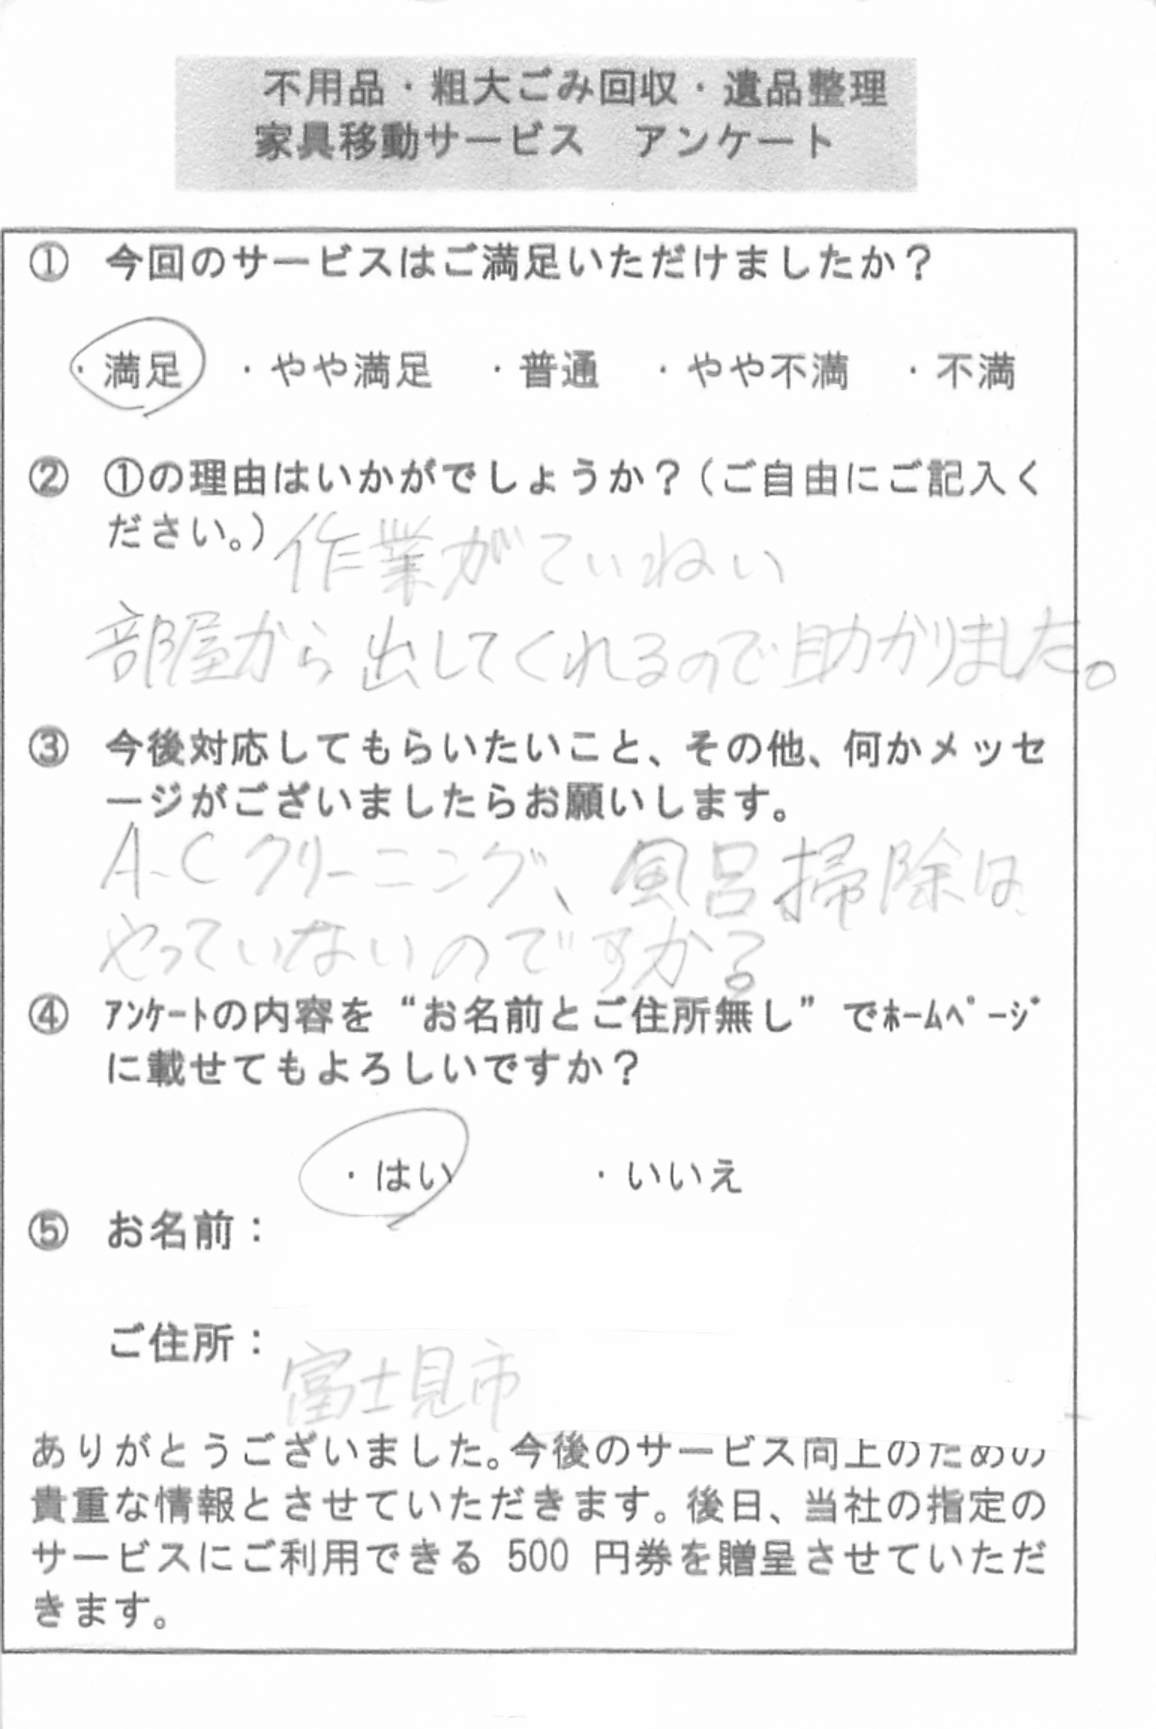 不用品・粗大ごみ回収・遺品整理
家具移動サービス　アンケート
① 今回のサービスはご満足いただけましたか？
・満足 ・やや満足 ・普通 ・やや不満 ・不満
② ①の理由はいかがでしょうか？（ご自由にご記入く
ださい。）作業がていねい
部屋から出してくれるので助かりました。
③ 今後対応してもらいたいこと、その他、何かメッセ
ージがございましたらお願いします。
A.Cクリーニング、風呂掃除は
やっていないのですか?
④ ｱﾝｹｰﾄの内容を“お名前とご住所無し”でﾎｰﾑﾍﾟｰｼﾞ
に載せてもよろしいですか？
・はい ・いいえ
⑤ お名前：
ご住所：
富士見市
ありがとうございました。今後のサービス向上のための
貴重な情報とさせていただきます。後日、当社の指定の
サービスにご利用できる 500 円券を贈呈させていただ
きます。